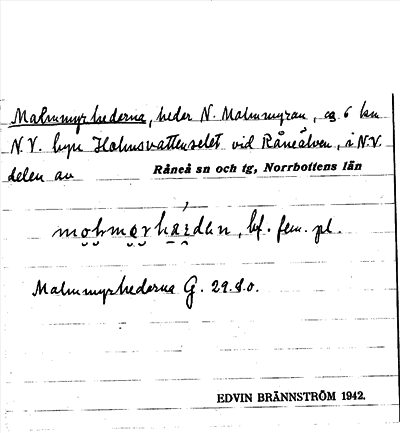 Malmmyrhederna, heder N. Malmmyran, ca 6 km
N.V. byn Holmsvattenselet vid Råneälven, i N.V.
delen av Råneå sn och tg, Norrbottens län
bf. fem. pl.
Malmmyrhederna G. 29.8.0.
EDVIN BRÄNNSTRÖM 1942.